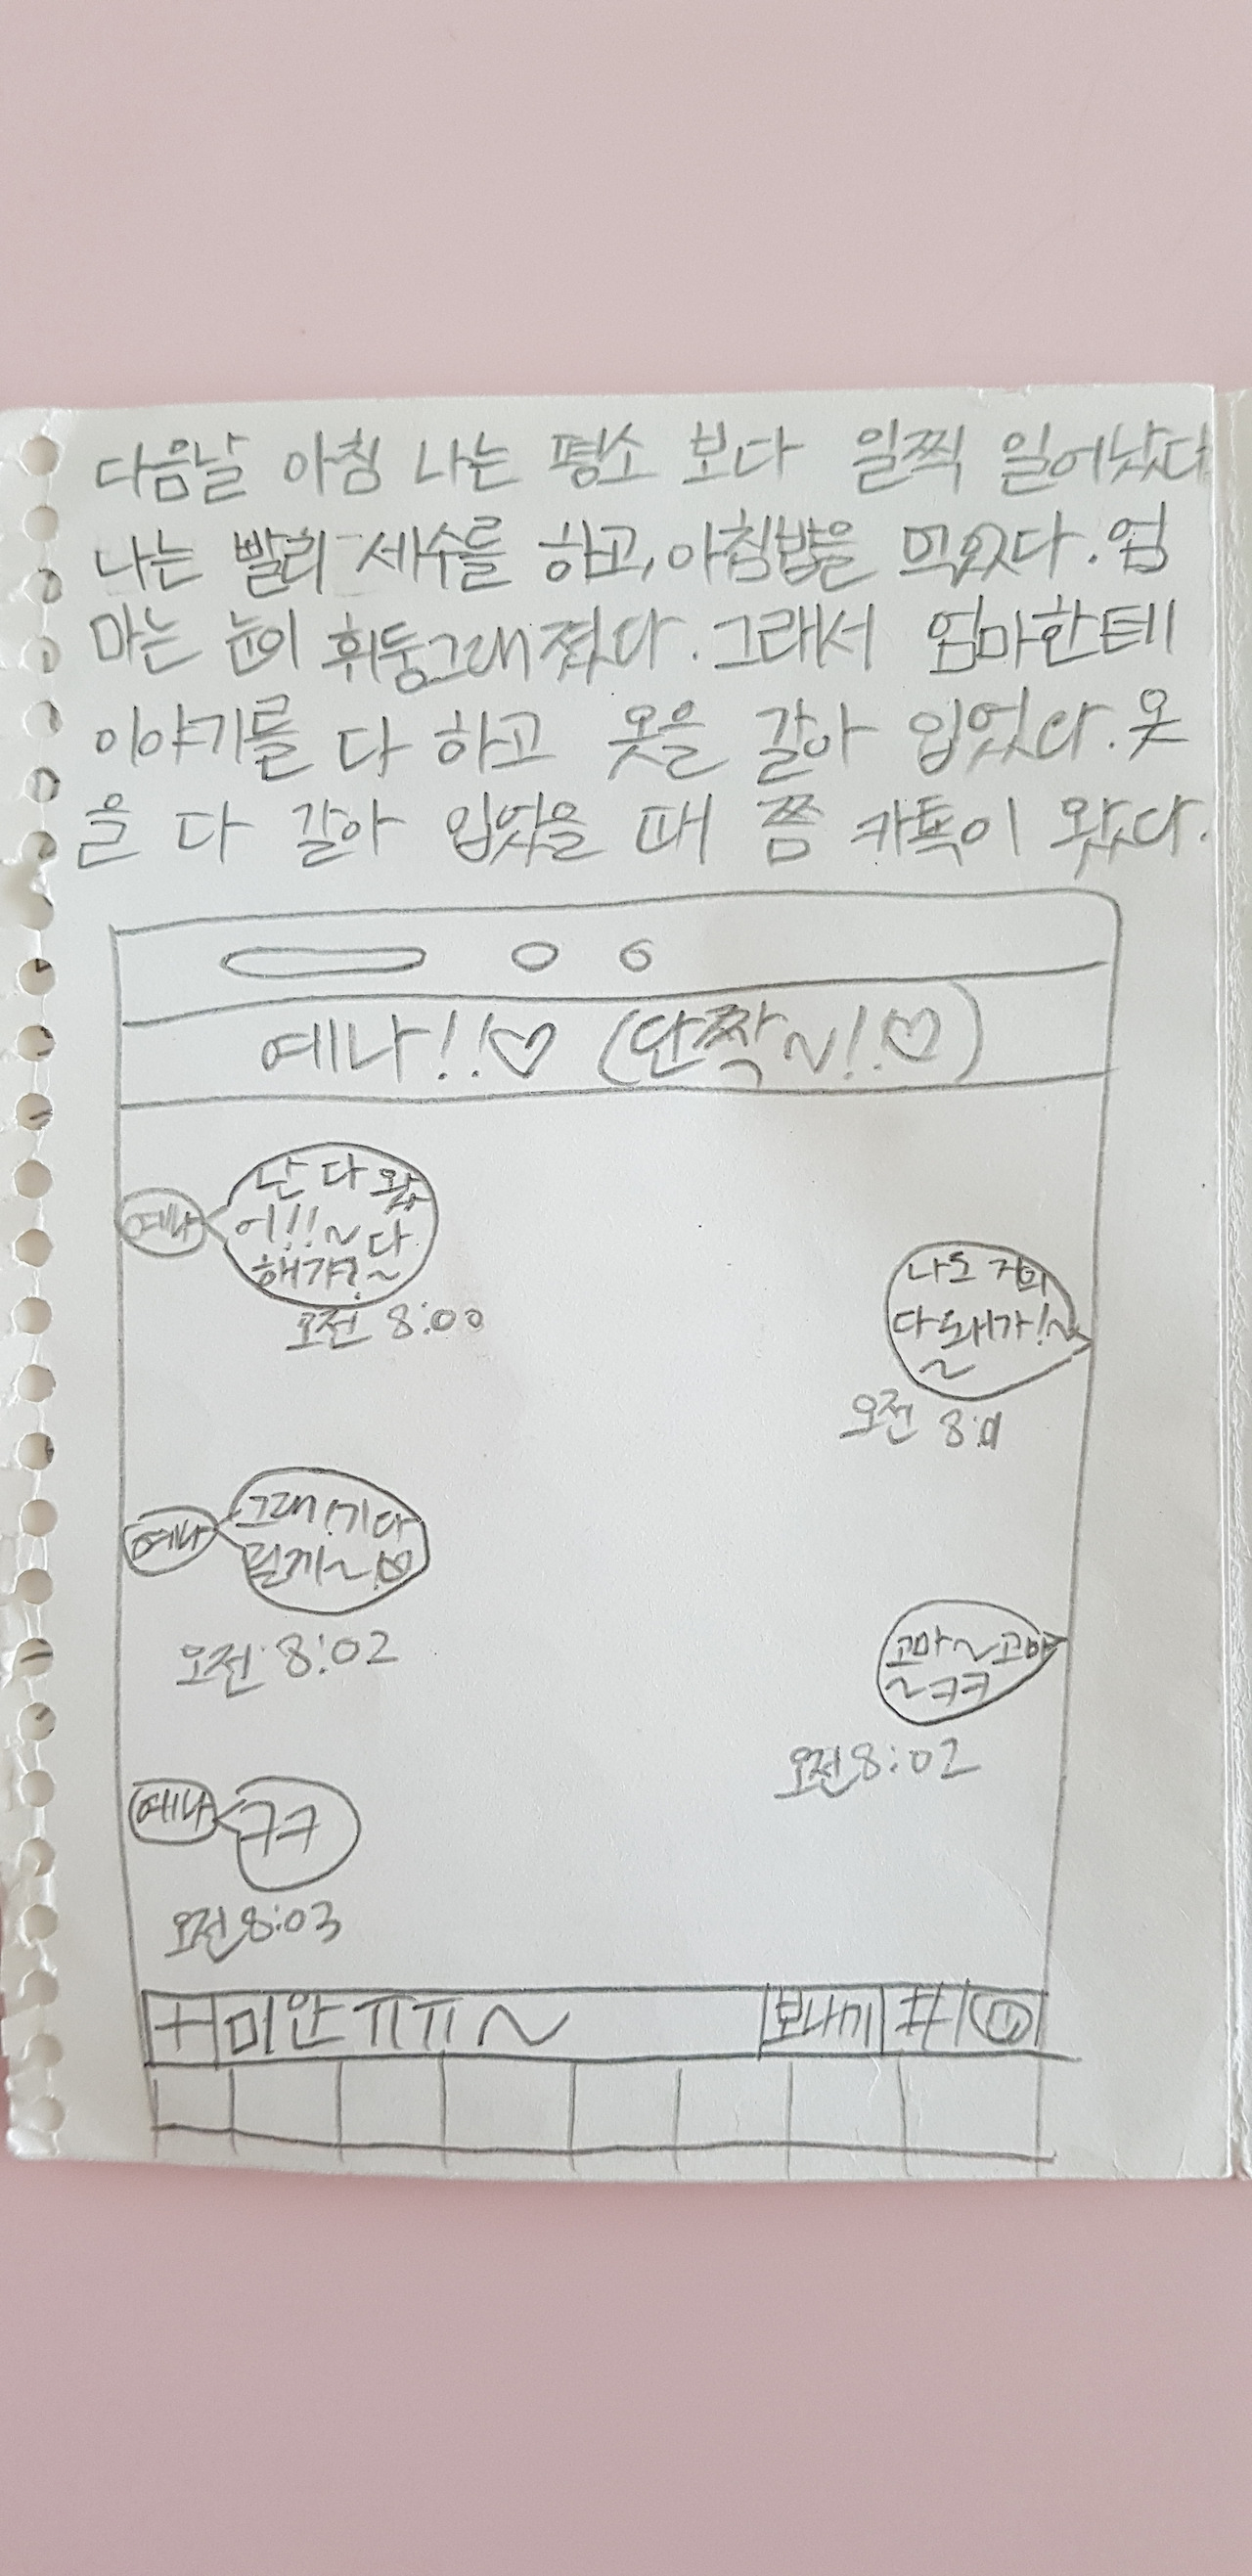 다음날 아침 나는 평소 보다 일찍 일어났다
나는 빨리 세수를 하고, 아침밥을 먹었다. 엄
마는 눈이 휘둥그래졌다. 그래서 엄마한테
이야기를 다 하고 옷을 갈아 입었다. 옷
을 다 갈아 입었을 때 쯤 카톡이 왔다.
예나!!♡ (단짝~!♡)
예나
난 다 왔
어!!~다
해가?~
오전 8:00
나도 거의
다 돼가!~
~
오전 8:01
예나
그래!기다
릴께~!♡
오전 8:02
고마~고마
~ㅋㅋ
오전 8:02
예나
ㅋㅋ
오전 8:03
+ 미안ㅠㅠ~ 보내기 #